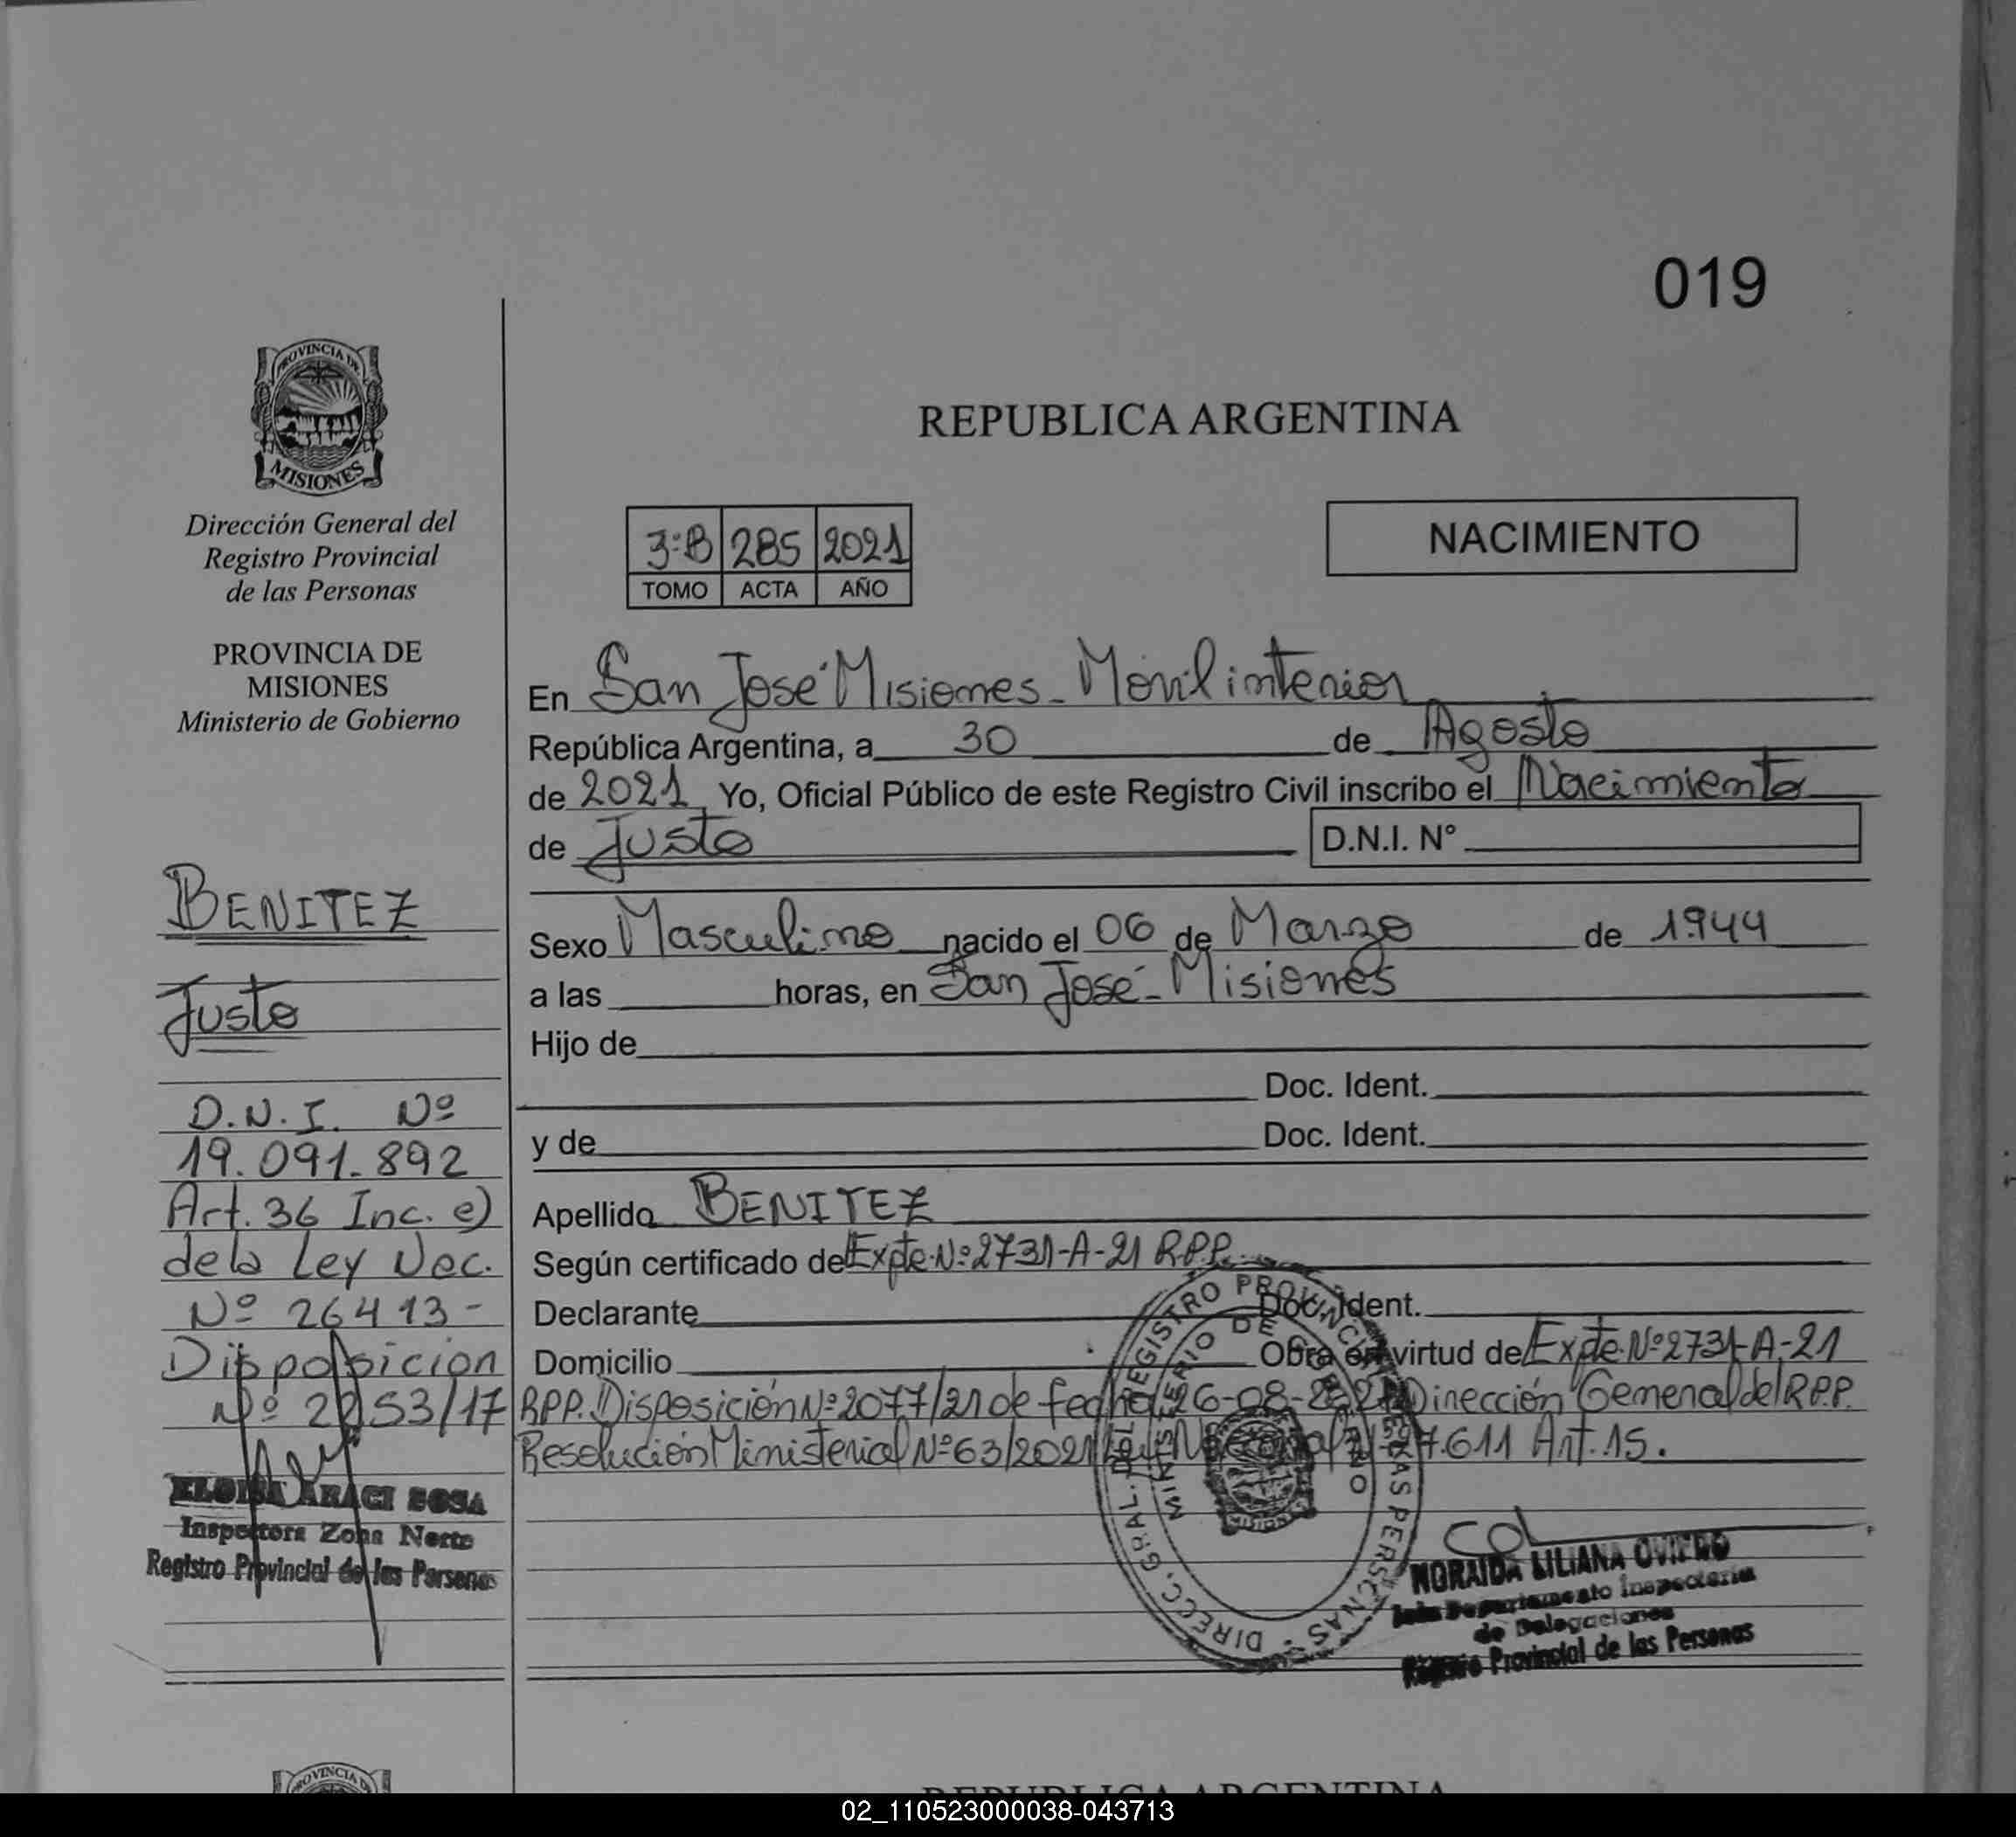 019
PROVINCIA DE
MISIONES
Dirección General del
Registro Provincial
de las Personas
PROVINCIA DE
MISIONES
Ministerio de Gobierno
BENITEZ
Justo
D.N.I. Nº
19.091.892
Art. 36 Inc. e)
de la Ley Nac.
Nº 26413-
Disposicion
Nº 2253/17
ARACI SOSA
Inspectora Zona Norte
Registro Provincial de las Personas
REPUBLICA ARGENTINA
3-B 285 2021
TOMO ACTA AÑO
NACIMIENTO
En San José Misiones - Movil interior
República Argentina, a 30 de Agosto
de 2021 Yo, Oficial Público de este Registro Civil inscribo el Nacimiento
de Justo D.N.I. N°
Sexo Masculino nacido el 06 de Marzo de 1944
a las horas, en San José - Misiones
Hijo de
Doc. Ident.
y de Doc. Ident.
Apellido BENITEZ
Según certificado de Expte. Nº 2731-A-21 R.P.P.
Declarante Doc. Ident.
Domicilio Obra en virtud de Expte. Nº 2731-A-21
RPP. Disposición Nº 2077/21 de fecha 26-08-2021 Dirección General del R.P.P.
Resolución Ministerial Nº 63/2021 Ley Nacional 27.611 Art. 15.
DIRECC. GRAL. DEL REGISTRO PROVINCIAL DE LAS PERSONAS
MINISTERIO DE GOBIERNO
NORAIDA LILIANA OVIEDO
Departamento Inspectoria
de Delegaciones
Registro Provincial de las Personas
PROVINCIA DE
REPUBLICA ARGENTINA
02_110523000038-043713